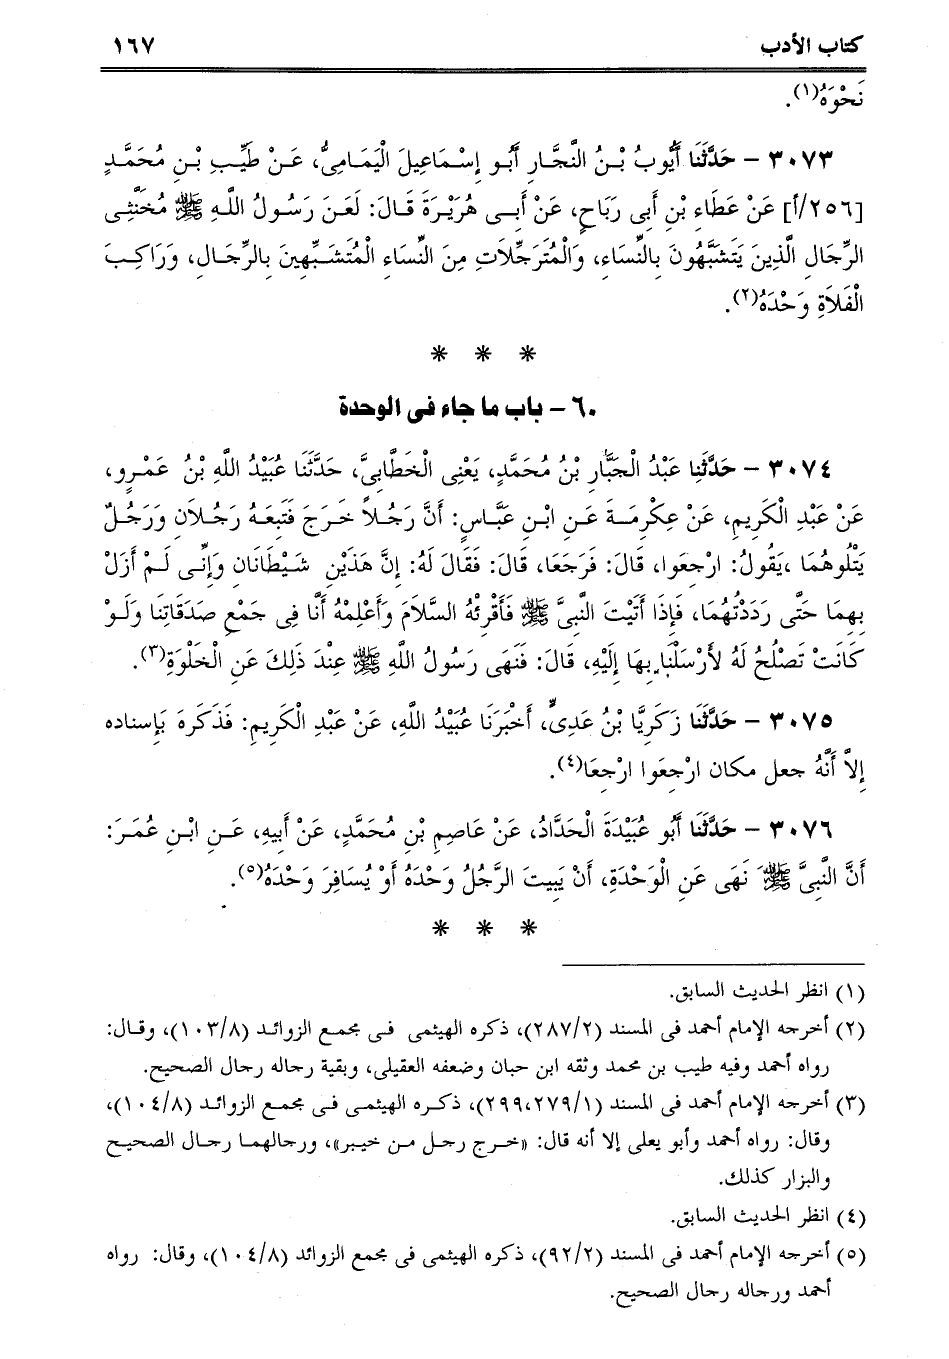 كتاب الأدب ١٦٧
نَحْوَهُ(١).
٣٠٧٣ – حَدَّثَنَا أَيُّوبُ بْنُ النَّجَّارِ أَبُو إِسْمَاعِيلَ الْيَمَامِيُّ، عَنْ طَيِّبِ بْنِ مُحَمَّدٍ
[٢٥٦/أ] عَنْ عَطَاءِ بْنِ أَبِى رَبَاحٍ، عَنْ أَبِى هُرَيْرَةَ قَالَ: لَعَنَ رَسُولُ اللَّهِ ﷺ مُخَنَّثِى
الرِّجَالِ الَّذِينَ يَتَشَبَّهُونَ بِالنِّسَاءِ، وَالْمُتَرَجِّلاَتِ مِنَ النِّسَاءِ الْمُتَشَبِّهِينَ بِالرِّجَالِ، وَرَاكِبَ
الْفَلاَةِ وَحْدَهُ(٢).
* * *
٦٠ – باب ما جاء فى الوحدة
٣٠٧٤ – حَدَّثَنَا عَبْدُ الْجَبَّارِ بْنُ مُحَمَّدٍ، يَعْنِى الْخَطَّابِىَّ، حَدَّثَنَا عُبَيْدُ اللَّهِ بْنُ عَمْرٍو،
عَنْ عَبْدِ الْكَرِيمِ، عَنْ عِكْرِمَةَ عَنِ ابْنِ عَبَّاسٍ: أَنَّ رَجُلاً خَرَجَ فَتَبِعَهُ رَجُلاَنِ وَرَجُلٌ
يَتْلُوهُمَا ،يَقُولُ: ارْجِعُوا، قَالَ: فَرَجَعَا، قَالَ: فَقَالَ لَهُ: إِنَّ هَذَيْنِ شَيْطَانَانِ وَإِنِّى لَمْ أَزَلْ
بِهِمَا حَتَّى رَدَدْتُهُمَا، فَإِذَا أَتَيْتَ النَّبِىَّ ﷺ فَأَقْرِئْهُ السَّلاَمَ وَأَعْلِمْهُ أَنَّا فِى جَمْعِ صَدَقَاتِنَا وَلَوْ
كَانَتْ تَصْلُحُ لَهُ لأَرْسَلْنَا بِهَا إِلَيْهِ، قَالَ: فَنَهَى رَسُولُ اللَّهِ ﷺ عِنْدَ ذَلِكَ عَنِ الْخَلْوَةِ(٣).
٣٠٧٥ – حَدَّثَنَا زَكَرِيَّا بْنُ عَدِىٍّ، أَخْبَرَنَا عُبَيْدُ اللَّهِ، عَنْ عَبْدِ الْكَرِيمِ: فَذَكَرَهُ بَإسناده
إِلاَّ أَنَّهُ جعل مكان ارْجِعَوا ارْجِعَا(٤).
٣٠٧٦ – حَدَّثَنَا أَبُو عُبَيْدَةَ الْحَدَّادُ، عَنْ عَاصِمِ بْنِ مُحَمَّدٍ، عَنْ أَبِيهِ، عَنِ ابْنِ عُمَرَ:
أَنَّ النَّبِىَّ ﷺ نَهَى عَنِ الْوَحْدَةِ، أَنْ يَبِيتَ الرَّجُلُ وَحْدَهُ أَوْ يُسَافِرَ وَحْدَهُ(٥).
* * *
(١) انظر الحديث السابق.
(٢) أخرجه الإمام أحمد فى المسند (٢٨٧/٢)، ذكره الهيثمى فى مجمع الزوائد (١٠٣/٨)، وقال:
رواه أحمد وفيه طيب بن محمد وثقه ابن حبان وضعفه العقيلى، وبقية رجاله رجال الصحيح.
(٣) أخرجه الإمام أحمد فى المسند (٢٩٩،٢٧٩/١)، ذكره الهيثمى فى مجمع الزوائد (١٠٤/٨)،
وقال: رواه أحمد وأبو يعلى إلا أنه قال: «خرج رجل من خيبر»، ورجالهما رجال الصحيح
والبزار كذلك.
(٤) انظر الحديث السابق.
(٥) أخرجه الإمام أحمد فى المسند (٩٢/٢)، ذكره الهيثمى فى مجمع الزوائد (١٠٤/٨)، وقال: رواه
أحمد ورجاله رجال الصحيح.